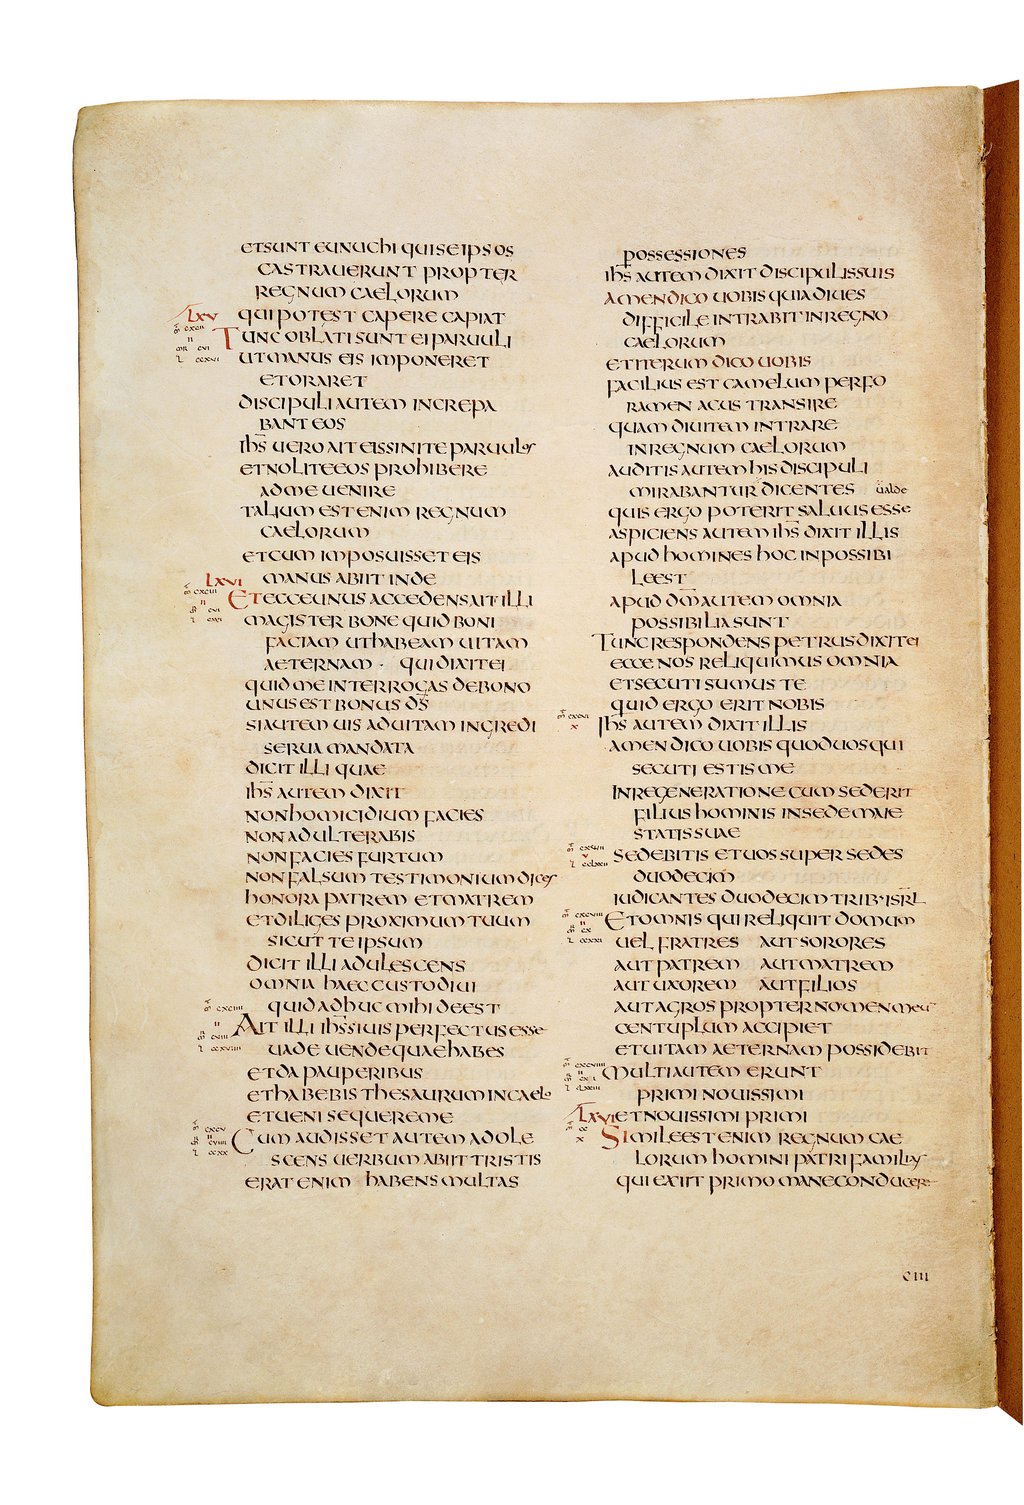 et sunt eunuchi qui se ipsos
castraverunt propter
regnum caelorum
lxv
qui potest capere capiat
Tunc oblati sunt ei parvuli
ut manus eis imponeret
et oraret
discipuli autem increpa
bant eos
ihs vero ait eis sinite parvulos
et nolite eos prohibere
ad me venire
talium est enim regnum
caelorum
et cum imposuisset eis
lxvi
manus abiit inde
Et ecce unus accedens ait illi
magister bone quid boni
faciam ut habeam vitam
aeternam · qui dixit ei
quid me interrogas de bono
unus est bonus ds
si autem vis ad vitam ingredi
serva mandata
dicit illi quae
ihs autem dixit
non homicidium facies
non adulterabis
non facies furtum
non falsum testimonium dices
honora patrem et matrem
et diliges proximum tuum
sicut te ipsum
dicit illi adulescens
omnia haec custodivi
quid adhuc mihi deest
Ait illi ihs si vis perfectus esse
vade vende quae habes
et da pauperibus
et habebis thesaurum in caelo
et veni sequere me
Cum audisset autem adole
scens verbum abiit tristis
erat enim habens multas
possessiones
ihs autem dixit discipulis suis
amen dico vobis quia dives
difficile intrabit in regno
caelorum
et iterum dico vobis
facilius est camelum per fo
ramen acus transire
quam divitem intrare
in regnum caelorum
auditis autem his discipuli
mirabantur dicentes valde
quis ergo poterit salvus esse
aspiciens autem ihs dixit illis
apud homines hoc inpossibi
le est
apud dm autem omnia
possibilia sunt
Tunc respondens petrus dixit ei
ecce nos reliquimus omnia
et secuti sumus te
quid ergo erit nobis
ihs autem dixit illis
amen dico vobis quod vos qui
secuti estis me
in regeneratione cum sederit
filius hominis in sede maie
statis suae
sedebitis et vos super sedes
duodecim
iudicantes duodecim trib· isrl
Et omnis qui reliquit domum
vel fratres aut sorores
aut patrem aut matrem
aut uxorem aut filios
aut agros propter nomen meu
centuplum accipiet
et vitam aeternam possidebit
Multi autem erunt
primi novissimi
et novissimi primi
Simile est enim regnum cae
lorum homini patri familias
qui exiit primo mane conducere
ciii